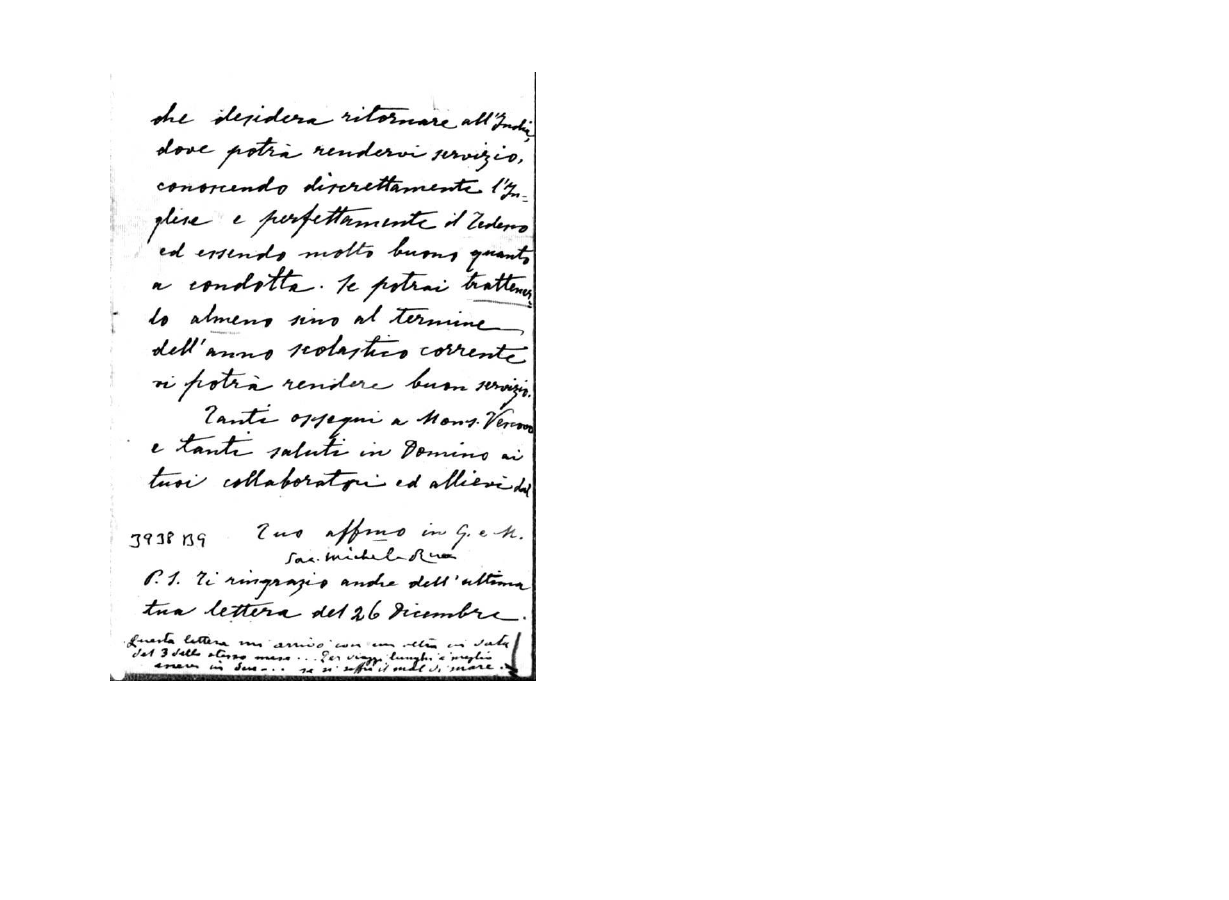 che desidera ritornare all'India,
dove potrà rendervi servizio,
conoscendo discrettamente l'In-
glese e perfettamente il Tedesco
ed essendo molto buono quanto
a condotta. Se potrai trattener-
lo almeno sino al termine
dell'anno scolastico corrente
vi potrà rendere buon servizio.
Tanti ossequi a Mons. Vescovo
e tanti saluti in Domino ai
tuoi collaboratori ed allievi dal
Tuo affmo in G. e M.
3938 B9
Sac. Michele Rua
P. S. Ti ringrazio anche dell'ultima
tua lettera del 26 Dicembre.
Questa lettera mi arrivò con un altra in data
del 3 dello stesso mese... Per viaggi lunghi è meglio
essere in due... se si soffre il mal di mare.